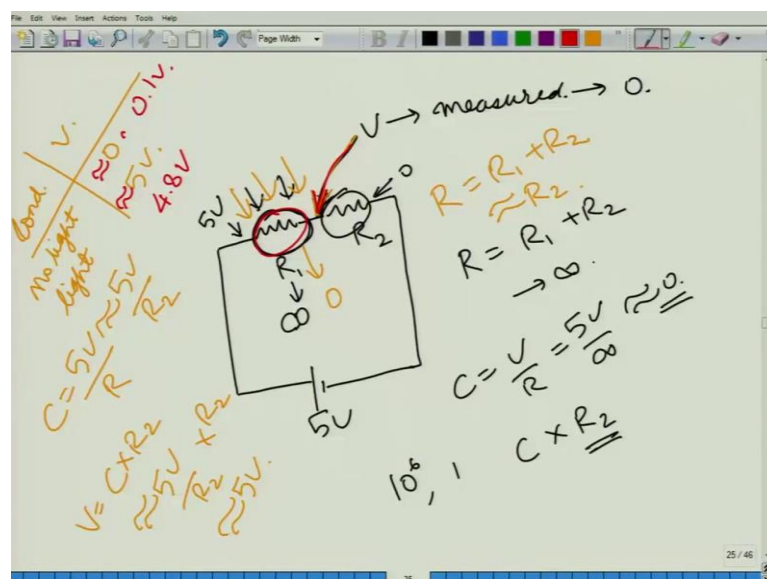 File Edit View Insert Actions Tools Help
Page Width
B I
Cond. V.
No light ≈0. 0.1V.
light ≈5V. 4.8V
V → measured. → 0.
5V
0
R1
R2
∞
0
5V
R = R1 + R2
≈R2.
R = R1 + R2
→ ∞.
C = V/R = 5V/∞ ≈ 0.
C × R2
10^6, 1
C = 5V/R ≈ 5V/R2
V = C × R2
≈ 5V/R2 × R2
≈ 5V.
25 / 46